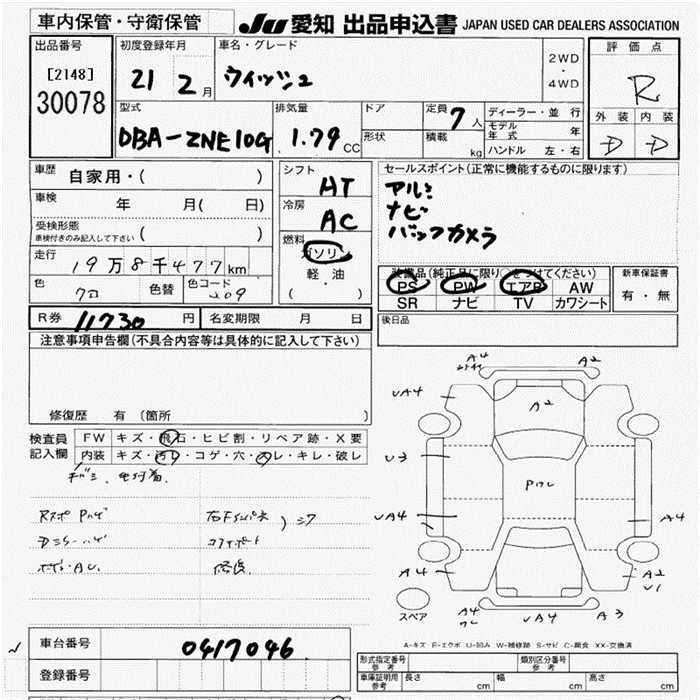 車内保管・守衛保管
JU 愛知 出品申込書 JAPAN USED CAR DEALERS ASSOCIATION
出品番号 初度登録年月 車名・グレード 2WD・4WD 評価点
[2148] 21 2月 ウィッシュ R
30078
型式 排気量 ドア 定員 7人 ディーラー・並行 外装 内装
DBA-ZNE10G 1.79 CC 形状 積載 kg モデル年式 年 D D
ハンドル 左・右
車歴 自家用・( ) シフト AT セールスポイント(正常に機能するものに限ります)
車検 年 月( 日) 冷房 AC アルミ
受検形態 ( ) ナビ
車検付きのみ記入して下さい 燃料 ガソリン バックカメラ
走行 19万8千477km 軽・油
色 クロ 色替 色コード 209 ( ・ )
装備品(純正品に限り○をつけてください) 新車保証書
PS PW エアB AW 有・無
SR ナビ TV カワシート
R券 11730円 名変期限 月 日 後日品
注意事項申告欄(不具合内容等は具体的に記入して下さい)
修復歴 有 (箇所 )
検査員 FW キズ・飛石・ヒビ割・リペア跡・X要
記入欄 内装 キズ・汚レ・コゲ・穴・スレ・キレ・破レ
A4 A2
UA4 A2
U3 Pワレ
UA4 A4
A4 A2
U1
スペア A4 UA4 A3
A-キズ E-エクボ U-凹み W-補修跡 S-サビ C-腐食 XX-交換済
車台番号 0417046
登録番号
形式指定番号 参考 類別区分番号 参考
車庫証明用 参考 長さ cm 幅 cm 高さ cm